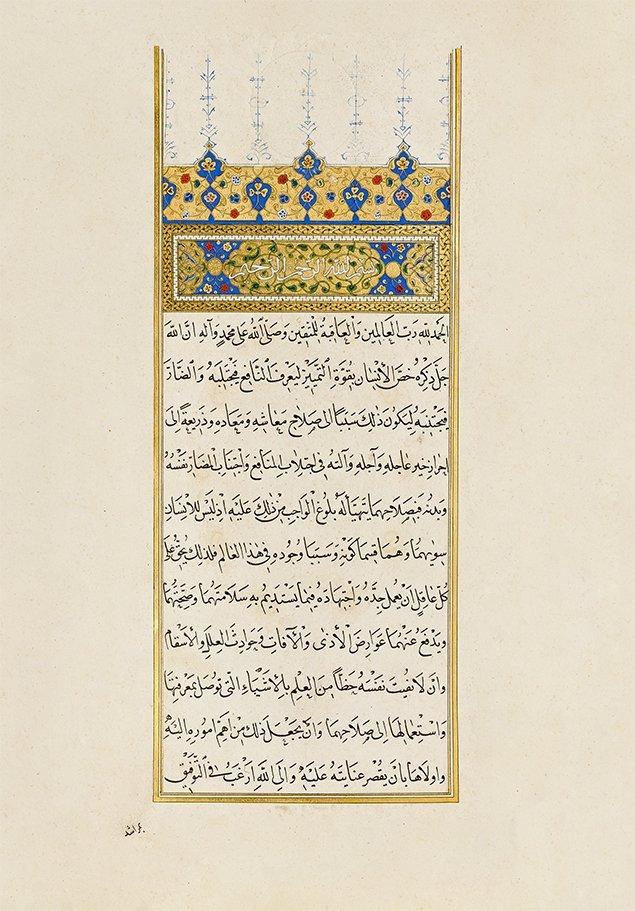 بسم الله الرحمن الرحيم
الحمد لله رب العالمين والعاقبة للمتقين وصلى الله على محمد وآله ان الله
جل ذكره خص الانسان بقوة التمييز ليعرف النافع فيجتلبه والضار
فيجتنبه ليكون ذلك سببا الى صلاح معاشه ومعاده وذريعة الى
احراز خير عاجله وآجله وآلته في اجتلاب المنافع واجتناب المضار نفسه
وبدنه فبصلاحهما يتهيأ له بلوغ الواجب من ذلك عليه اذ ليس للانسان
سويهما وهما قسما كونه وسببا وجوده في هذا العالم فلذلك يحق على
كل عاقل ان يعمل جده واجتهاده فيما يستديم به سلامتهما وصحتهما
ويدفع عنهما عوارض الأذى والآفات وحوادث العلل والاسقام
وان لا تفيت نفسه حظا من العلم بالاشياء التي توصل بمعرفتها
واستعمالها الى صلاحهما وان يجعل ذلك من اهم اموره اليه
واولاها بان يقصر عنايته عليه والى الله ارغب في التوفيق